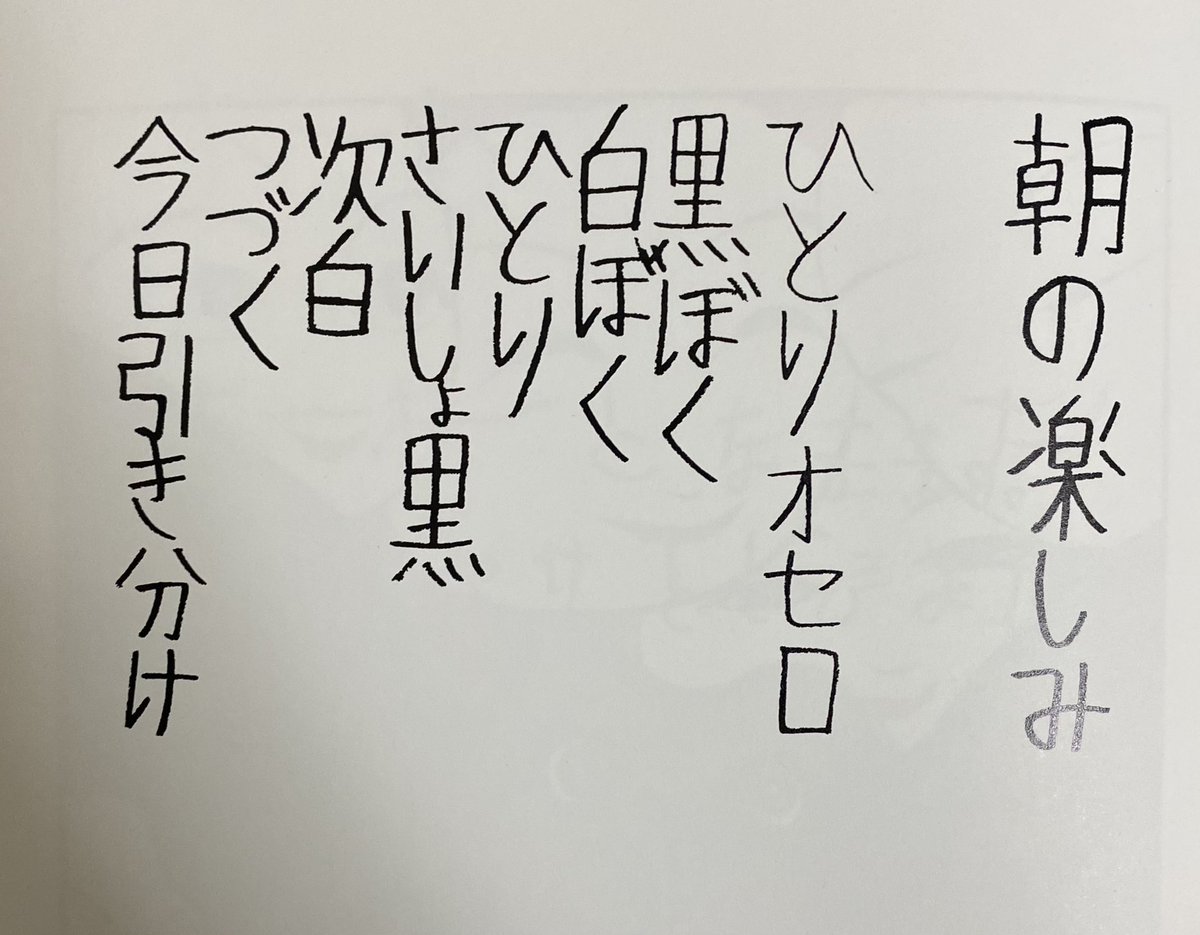 朝の楽しみ
ひとりオセロ
黒ぼく
白ぼく
ひとり
さいしょ黒
次白
つづく
今日引き分け